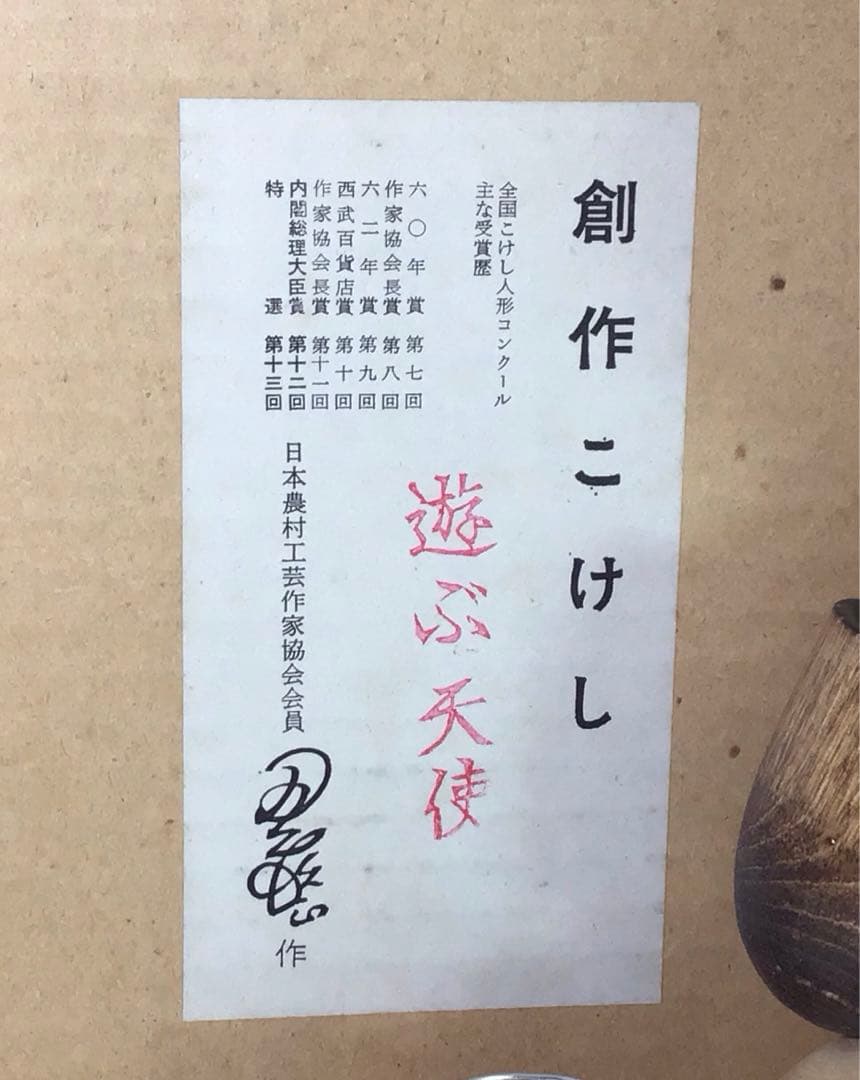 創作こけし
全国こけし人形コンクール
主な受賞歴
六〇年賞 第七回
作家協会長賞 第八回
六二年賞 第九回
西武百貨店賞 第十回
作家協会長賞 第十一回
内閣総理大臣賞 第十二回
特選 第十三回
遊ぶ天使
日本農村工芸作家協会会員
作